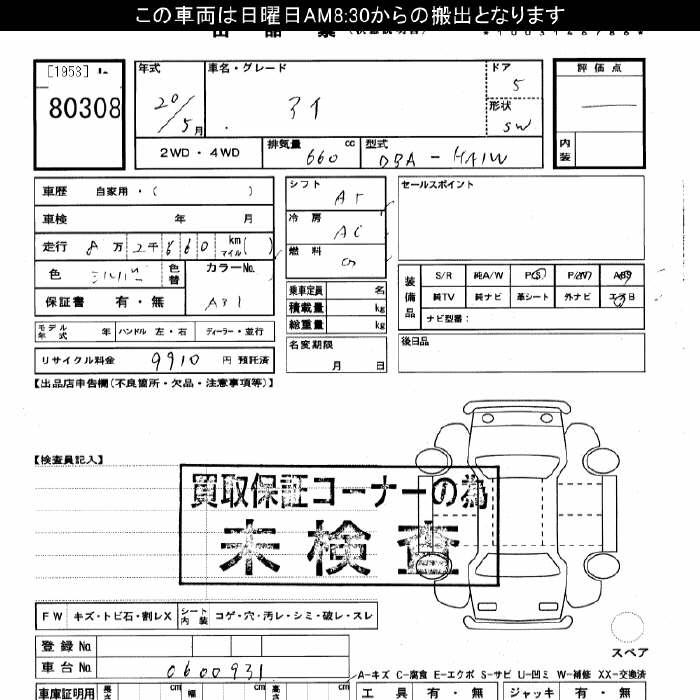 この車両は日曜日AM8:30からの搬出となります
[1953]
80308
年式
20/5月
車名・グレード
アイ
ドア
5
形状
SW
評価点
内装
2WD・4WD
排気量 660 cc
型式 DBA-HA1W
車歴 自家用・( )
車検 年 月
走行 8万2千660 km マイル( )
色 シルバー 色替
カラーNo. A31
保証書 有・無
シフト AT
冷房 AC
燃料 G
乗車定員 名
積載量 kg
総重量 kg
セールスポイント
装備品
S/R 純A/W P(S) P/W ABS
純TV 純ナビ 革シート 外ナビ エアB
ナビ型番:
モデル年式 年 ハンドル 左・右 ディーラー・並行
名変期限 月 日
後日品
リサイクル料金 9910 円 預託済
【出品店申告欄(不良箇所・欠品・注意事項等)】
【検査員記入】
買取保証コーナーの為
未検査
FW キズ・トビ石・割レX シート内装 コゲ・穴・汚レ・シミ・破レ・スレ
登録No.
車台No. 0600931
スペア
A-キズ C-腐食 E-エクボ S-サビ U-凹ミ W-補修 XX-交換済
車庫証明用 長さ cm 幅 cm 高さ cm
工具 有・無 ジャッキ 有・無